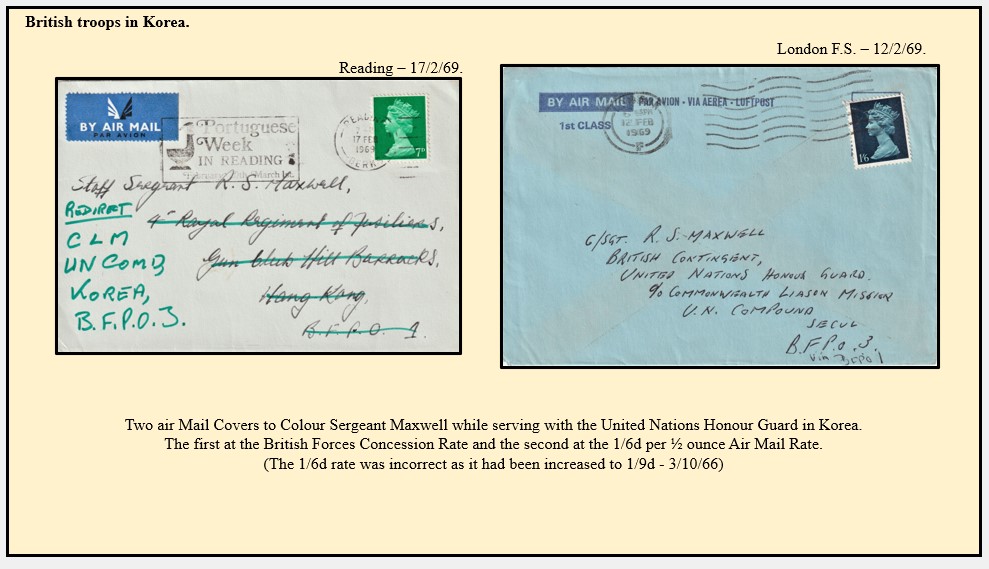 British troops in Korea.
Reading – 17/2/69.
London F.S. – 12/2/69.
BY AIR MAIL
PAR AVION
Portuguese
Week
IN READING
March 1st.
READING
17 FEB
1969
BERKS
7D
Staff Sergeant R. S. Maxwell,
4th Royal Regiment of Fusiliers,
Gun Club Hill Barracks,
Hong Kong,
B.F.P.O. 1.
REDIRET
C L M
UN COMD
KOREA,
B.F.P.O. 3.
BY AIR MAIL PAR AVION - VIA AEREA - LUFTPOST
1st CLASS
12 FEB
1969
1/6
C/SGT. R. S. MAXWELL
BRITISH CONTINGENT,
UNITED NATIONS HONOUR GUARD.
c/o COMMONWEALTH LIASON MISSION
U.N. COMPOUND
SEOUL
B.F.P.O. 3.
Via BFPO 1
Two air Mail Covers to Colour Sergeant Maxwell while serving with the United Nations Honour Guard in Korea.
The first at the British Forces Concession Rate and the second at the 1/6d per ½ ounce Air Mail Rate.
(The 1/6d rate was incorrect as it had been increased to 1/9d - 3/10/66)